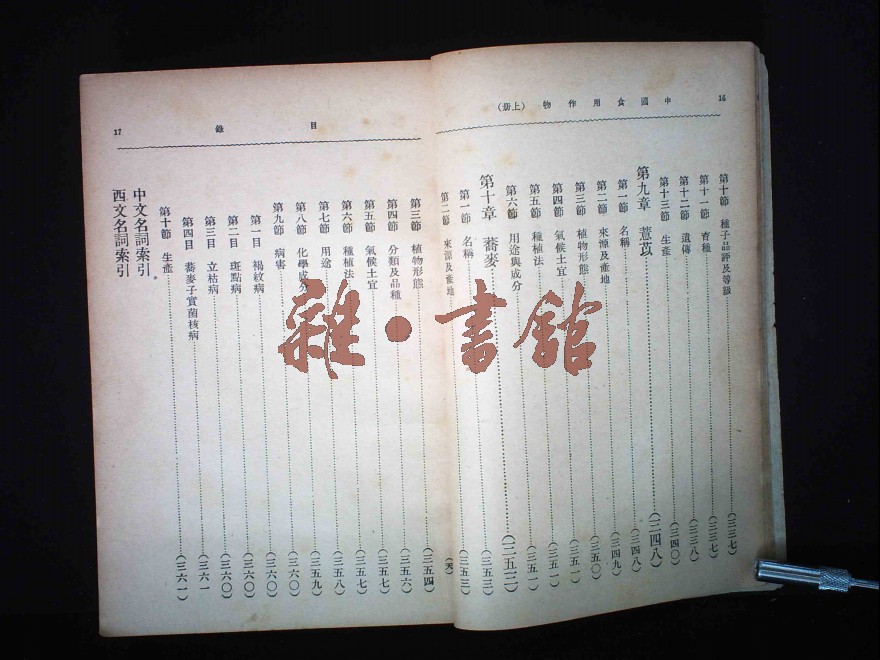 16
中國食用作物（上册）
第十節 種子品評及等級……（三三七）
第十一節 育種……（三三七）
第十二節 遺傳……（三三八）
第十三節 生產……（三四〇）
第九章 薏苡……（三四八）
第一節 名稱……（三四八）
第二節 來源及產地……（三四九）
第三節 植物形態……（三五〇）
第四節 氣候土宜……（三五一）
第五節 種植法……（三五一）
第六節 用途與成分……（三五一）
第十章 蕎麥……（三五三）
第一節 名稱……（三五三）
第二節 來源及產地
目錄
17
第三節 植物形態……（三五四）
第四節 分類及品種……（三五六）
第五節 氣候土宜……（三五七）
第六節 種植法……（三五七）
第七節 用途……（三五八）
第八節 化學成分……（三五九）
第九節 病害……（三六〇）
第一目 褐紋病……（三六〇）
第二目 斑點病……（三六〇）
第三目 立枯病……（三六〇）
第四目 蕎麥子實菌核病……（三六一
第十節 生產……（三六一）
中文名詞索引
西文名詞索引
雜·書館